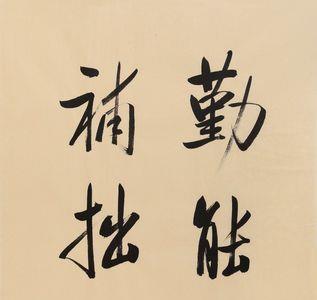 勤能
補拙